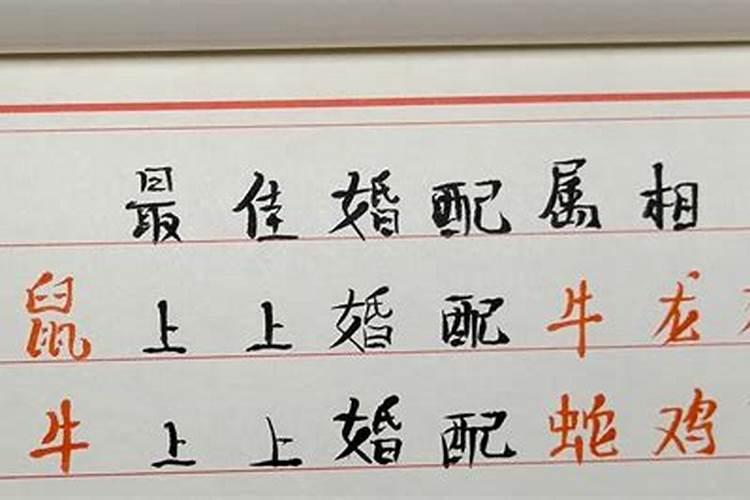 最佳婚配属相
鼠上上婚配牛龙
牛上上婚配蛇鸡